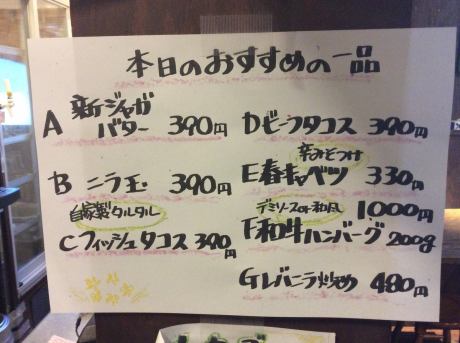 本日のおすすめの一品
A 新ジャガ
バター 390円
B ニラ玉 390円
自家製タルタル
Cフィッシュタコス 390円
Dビーフタコス 390円
辛みそつけ
E春キャベツ 330円
デミソースor和風 1000円
F和牛ハンバーグ 200g
Gレバニラ炒め 480円